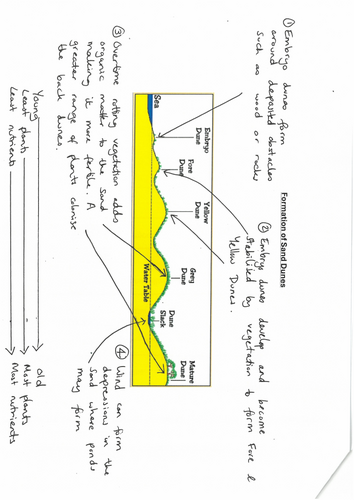 Formation of Sand Dunes
① Embryo dunes form
around deposited obstacles
such as wood or rocks
② Embryo dunes develop and become
stabilised by vegetation to form Fore &
Yellow Dunes.
③ Overtime rotting vegetation adds
organic matter to the sand
making it more fertile. A
greater range of plants colonise
the back dunes.
Sea
Embryo
Dune
Fore
Dune
Yellow
Dune
Grey
Dune
Dune
Slack
Mature
Dune
Water Table
④ Wind can form
depressions in the
sand where ponds
may form
Young Old
Least plants Most plants
Least nutrients Most nutrients